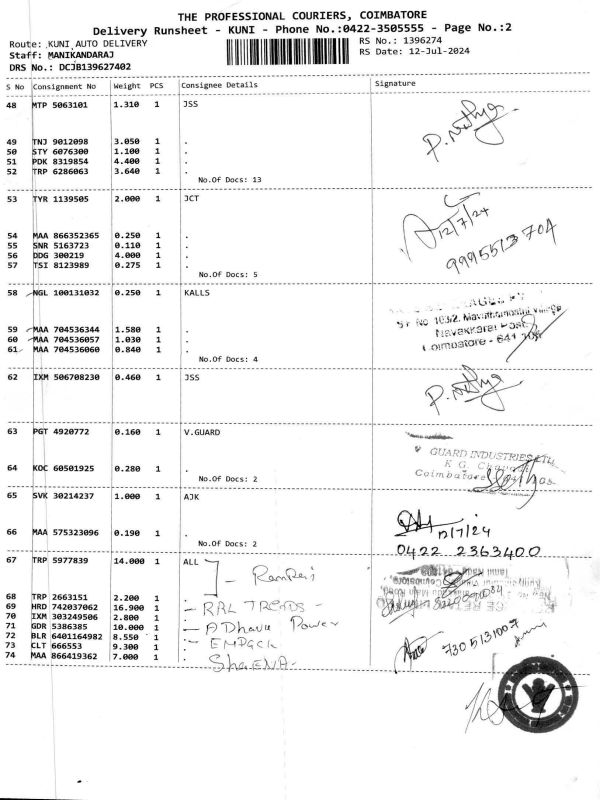 THE PROFESSIONAL COURIERS, COIMBATORE
Delivery Runsheet - KUNI - Phone No.:0422-3505555 - Page No.:2
Route: KUNI AUTO DELIVERY
RS No.: 1396274
Staff: MANIKANDARAJ
RS Date: 12-Jul-2024
DRS No.: DCJB139627402
S No Consignment No Weight PCS Consignee Details Signature
48 MTP 5063101 1.310 1 JSS
49 TNJ 9012098 3.050 1 .
50 STY 6076300 1.100 1 .
51 PDK 8319854 4.400 1 .
52 TRP 6286063 3.640 1 .
No.Of Docs: 13
53 TYR 1139505 2.000 1 JCT
12/7/24
9995513704
54 MAA 866352365 0.250 1 .
55 SNR 5163723 0.110 1 .
56 DDG 300219 4.000 1 .
57 TSI 8123989 0.275 1 .
No.Of Docs: 5
58 NGL 100131032 0.250 1 KALLS
59 MAA 704536344 1.580 1 .
60 MAA 704536057 1.030 1 .
61 MAA 704536060 0.840 1 .
Coimbatore - 641
No.Of Docs: 4
62 IXM 506708230 0.460 1 JSS
63 PGT 4920772 0.160 1 V.GUARD
GUARD INDUSTRIES LTD
K G.
Coimbatore
64 KOC 60501925 0.280 1 .
No.Of Docs: 2
65 SVK 30214237 1.000 1 AJK
66 MAA 575323096 0.190 1 .
12/7/24
No.Of Docs: 2
0422 2363400
67 TRP 5977839 14.000 1 ALL
68 TRP 2663151 2.200 1 .
69 HRD 742037062 16.900 1 . - RRL TRENDS -
70 IXM 303249506 2.800 1 .
71 GDR 5386385 10.000 1 . - ADhava Power
72 BLR 6401164982 8.550 1 . - EMPACK
7305131007
73 CLT 666553 9.300 1 .
74 MAA 866419362 7.000 1 . ShaENA